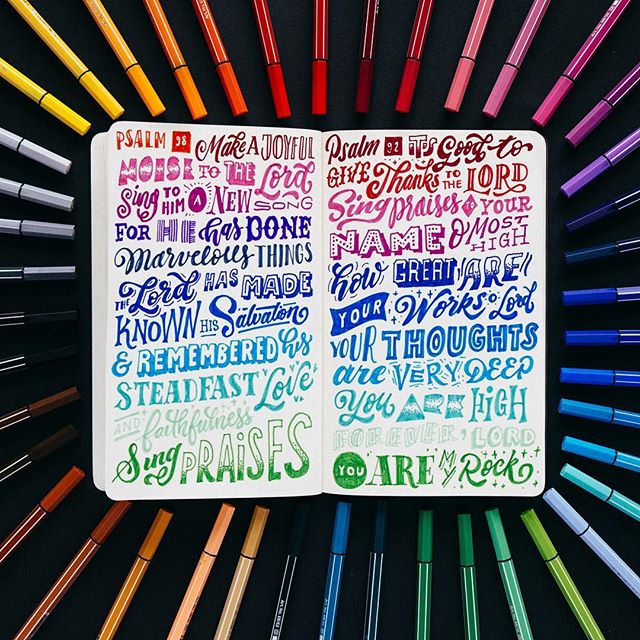 PSALM 98 Make A JOYFUL
NOISE TO THE Lord
Sing TO HIM A NEW SONG
FOR HE has DONE
Marvelous THINGS
THE Lord HAS MADE
KNOWN HIS Salvation
& REMEMBERED his
STEADFAST Love
AND faithfulness
Sing PRAISES
Psalm 92 IT'S Good to
GIVE Thanks TO THE LORD
Sing praises to YOUR
NAME O MOST HIGH
how GREAT ARE
YOUR Works O Lord
YOUR THOUGHTS
are VERY DEEP
You ARE HIGH
FOREVER, LORD
YOU ARE MY Rock